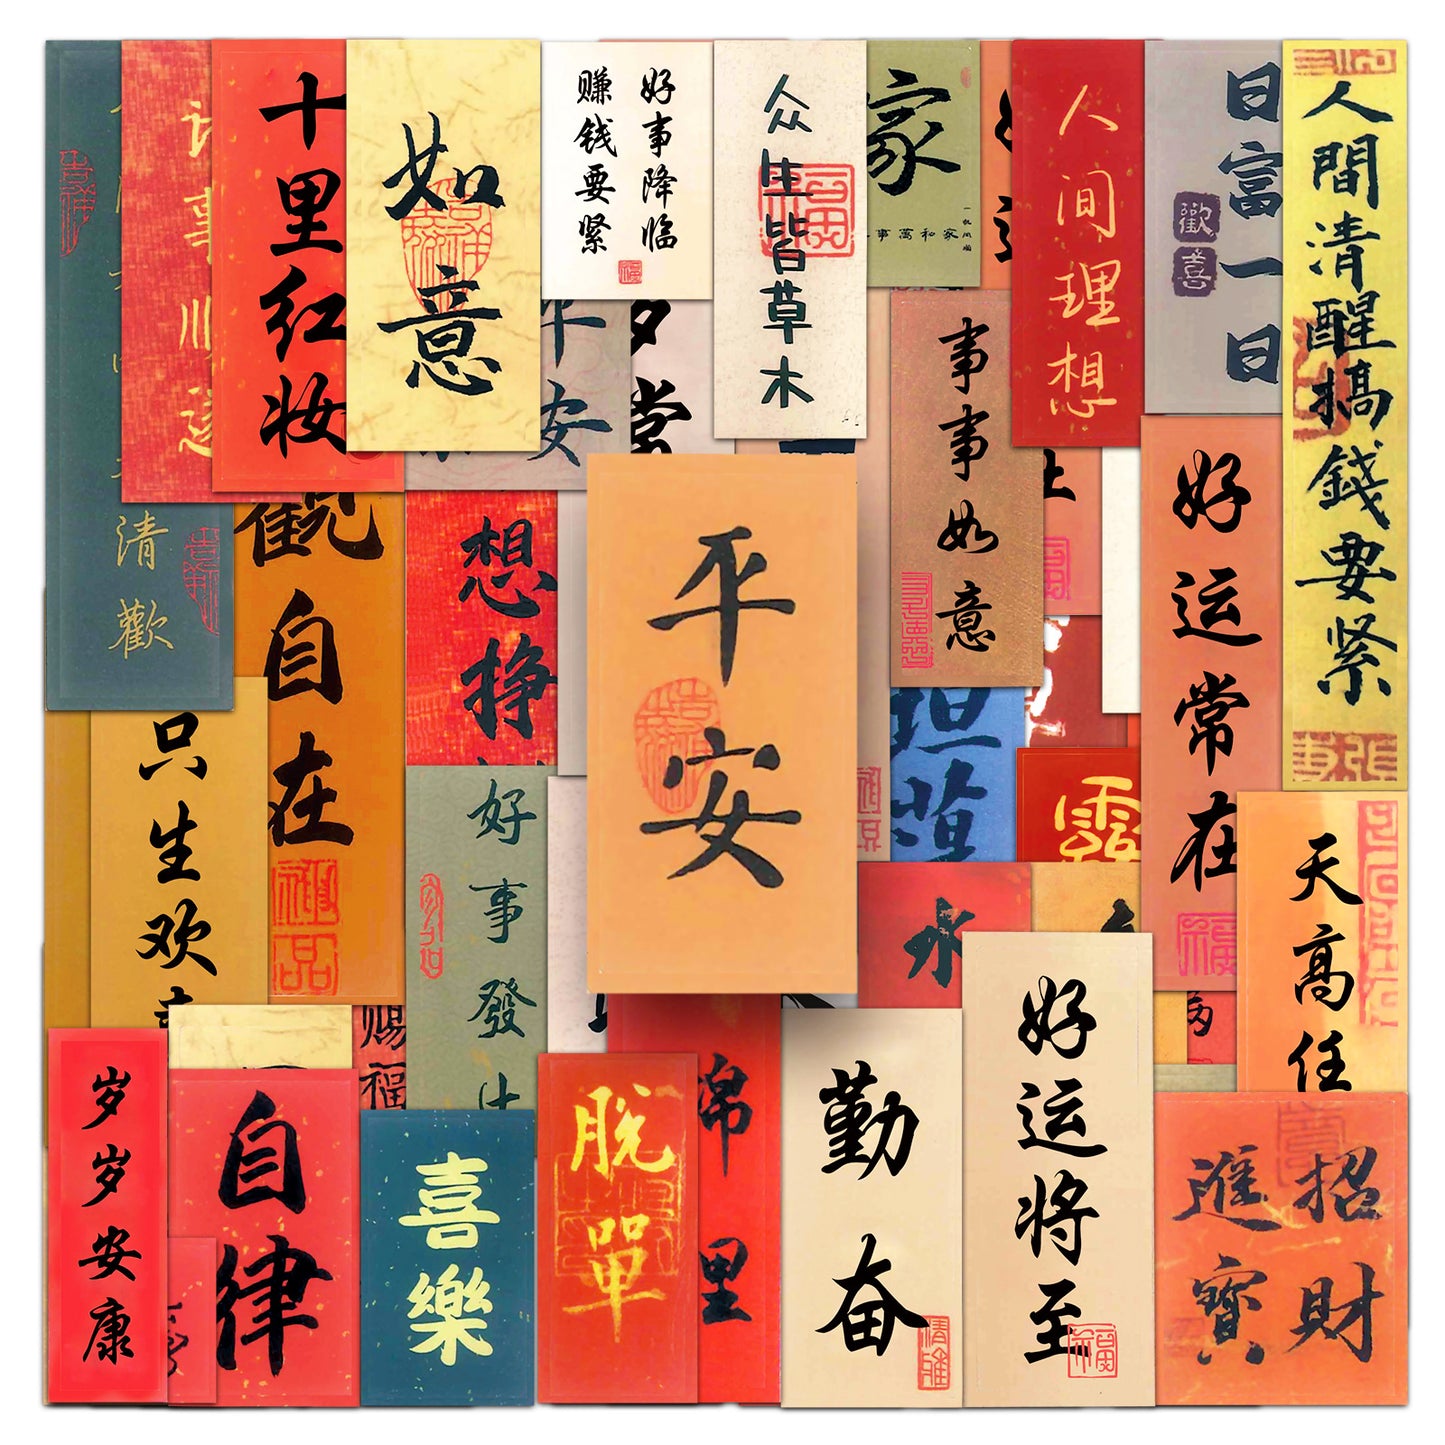 十里红妆
如意
好事降临
赚钱要紧
众生皆草木
家
事萬和家
人间理想
日富一日
歡喜
人間清醒搞錢要紧
事事如意
平安
清歡
事顺遂
觀自在
想挣
平安
常
好运常在
只生欢
好事發
坦荡
水
天高任
好运将至
岁岁安康
自律
喜樂
脫單
锦里
勤奋
招財
進寶
赐福